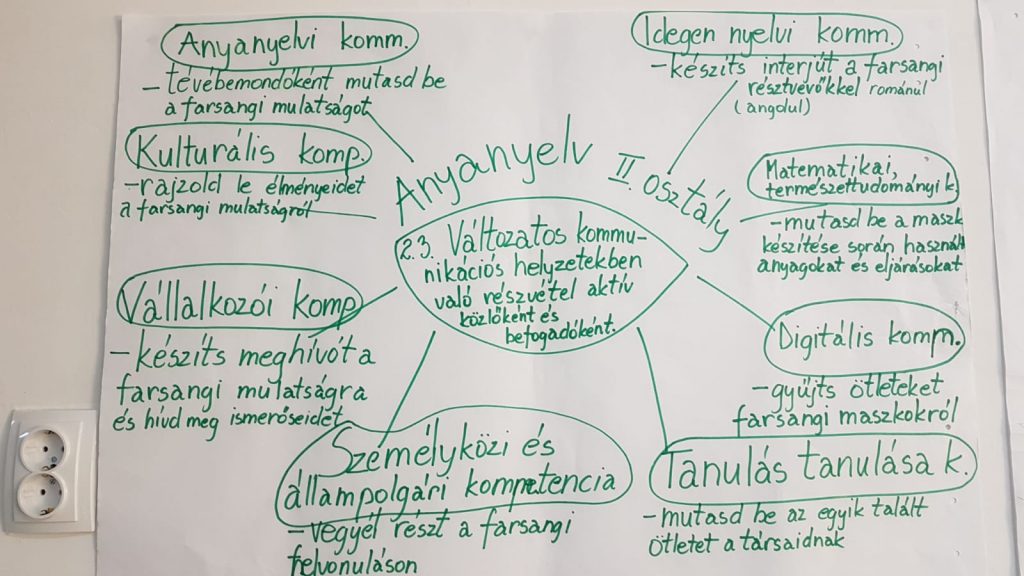 Anyanyelvi komm.
– tévébemondóként mutasd be
a farsangi mulatságot
Idegen nyelvi komm.
– készíts interjút a farsangi
résztvevőkkel románul
(angolul)
Kulturális komp.
– rajzold le élményeidet
a farsangi mulatságról
Anyanyelv II. osztály
2.3. Változatos kommu-
nikációs helyzetekben
való részvétel aktív
közlőként és
befogadóként.
Matematikai,
természettudományi k.
– mutasd be a maszk
készítése során használt
anyagokat és eljárásokat
Vállalkozói komp
– készíts meghívót a
farsangi mulatságra
és hívd meg ismerőseidet
Digitális komp.
– gyűjts ötleteket
farsangi maszkokról
Személyközi és
állampolgári kompetencia
– vegyél részt a farsangi
felvonuláson
Tanulás tanulása k.
– mutasd be az egyik talált
ötletet a társaidnak